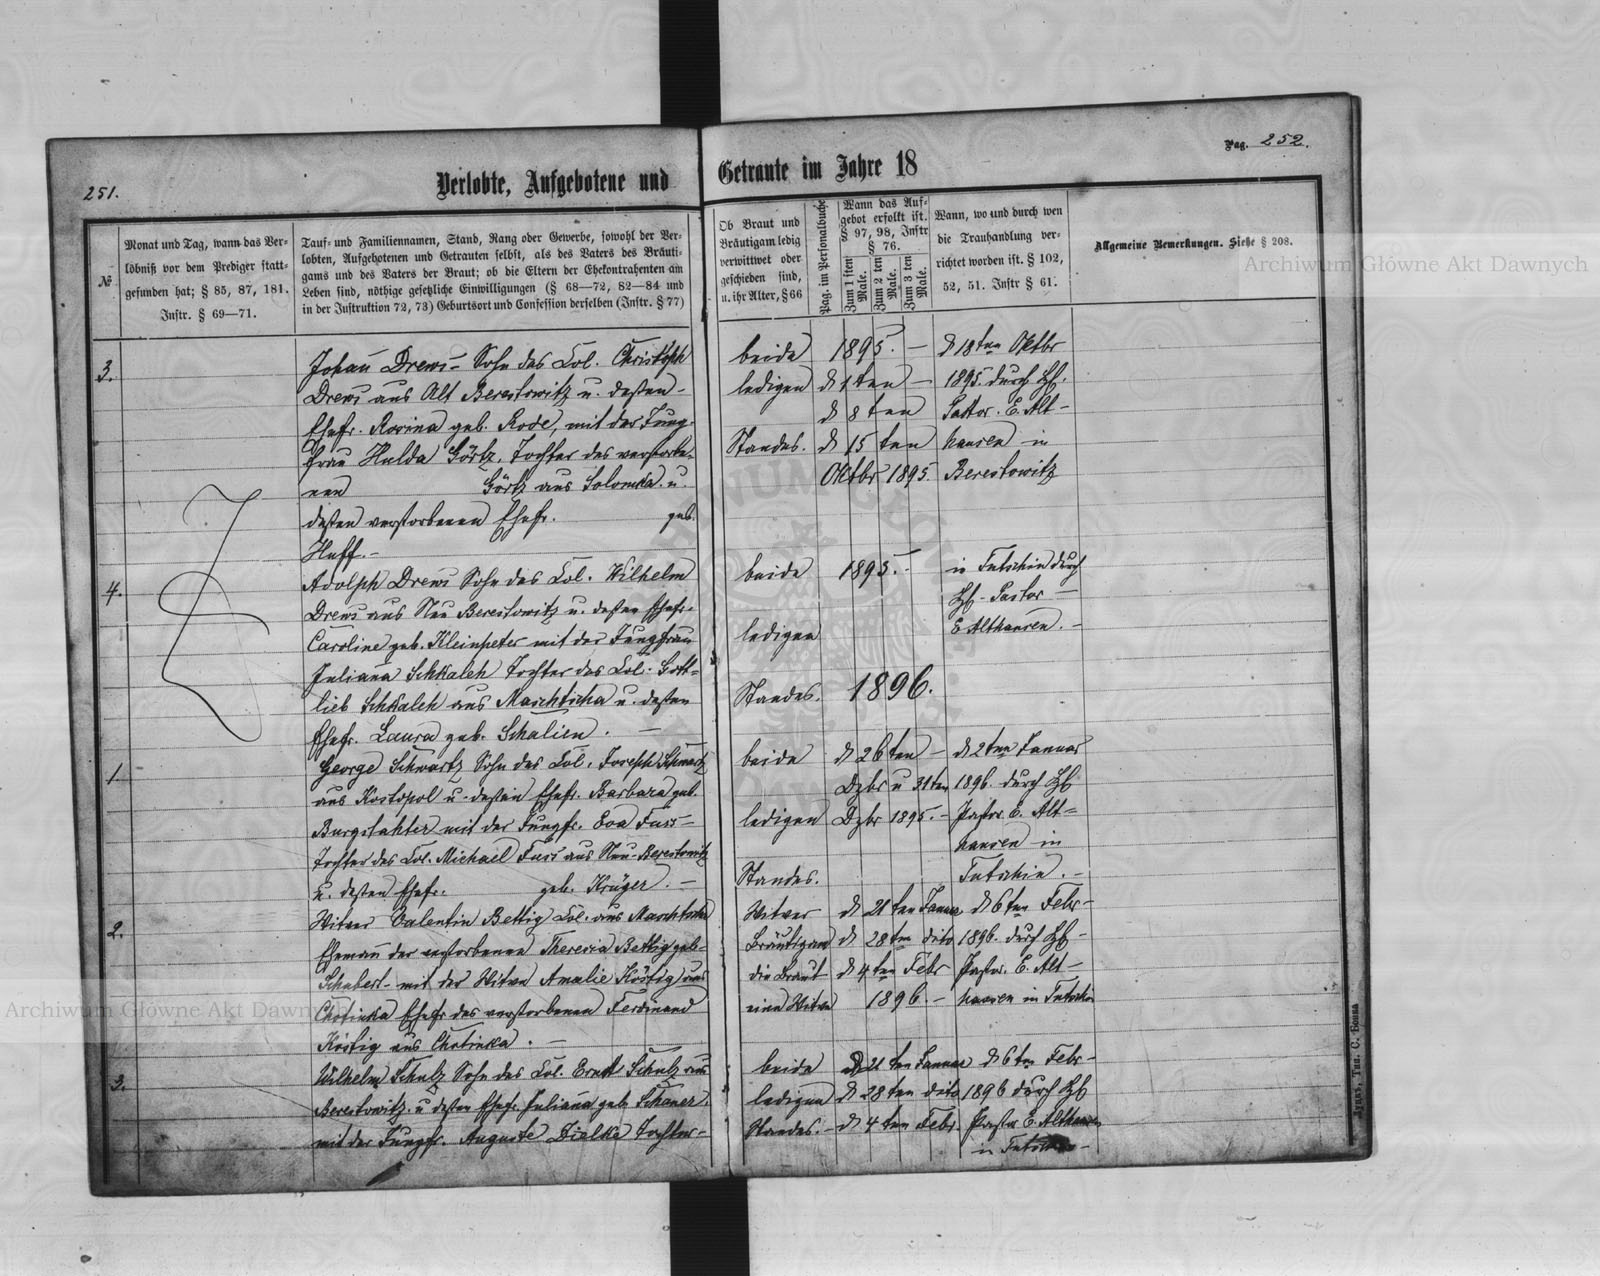 251.
Verlobte, Aufgebotene und
Getraute im Jahre 18
Pag. 252.
№
Monat und Tag, wann das Ver-
löbniß vor dem Prediger statt-
gefunden hat; § 85, 87, 181.
Instr. § 69—71.
Tauf- und Familiennamen, Stand, Rang oder Gewerbe, sowohl der Ver-
lobten, Aufgebotenen und Getrauten selbst, als des Vaters des Bräuti-
gams und des Vaters der Braut; ob die Eltern der Ehekontrahenten am
Leben sind, nöthige gesetzliche Einwilligungen (§ 68—72, 82—84 und
in der Instruktion 72, 73) Geburtsort und Confession derselben (Instr. § 77)
Ob Braut und
Bräutigam ledig
verwittwet oder
geschieden sind,
u. ihr Alter, §66
Pag. im Personalbuche
Wann das Auf-
gebot erfolkt ist.
§ 97, 98, Instr
§ 76.
Zum 1 sten Male.
Zum 2 ten Male.
Zum 3 ten Male.
Wann, wo und durch wen
die Trauhandlung ver-
richtet worden ist. § 102,
52, 51. Instr § 61.
Allgemeine Bemerkungen. Siehe § 208.
3.
Johan Drews Sohn des Col. Christoph
Drews aus Alt Berestowitz u. dessen
Ehefr. Rosina geb. Rode, mit der Jung-
frau Hulda Görtz, Tochter des verstorbe-
nen Görtz aus Solomka u.
dessen verstorbenen Ehefr. geb.
Huff.
beide
ledigen
Standes.
1895.
d 1ten
d 8ten
d 15ten
Oktbr 1895.
d 18ten Oktbr
1895. durch H.
Pastor. E. Alt-
hausen in
Berestowitz
4.
Adolph Drews Sohn des Col. Wilhelm
Drews aus Neu Berestowitz u. dessen Ehefr.
Caroline geb. Kleinpeter mit der Jungfrau
Juliana Schkaleh Tochter des Col. Gott-
lieb Schkaleh aus Maschtscha u. dessen
Ehefr. Laura geb. Schalien.
beide
ledigen
Standes.
1895.
in Tutschin durch
H. Pastor
E Althausen.
1896.
1
George Schwartz Sohn des Col. Joseph Schwartz
aus Kostopol u. dessen Ehefr. Barbara geb.
Burgstahter mit der Jungfr. Eva Fuss
Tochter des Col. Michael Fuss aus Neu-Berestowitz
u. dessen Ehefr. geb. Krüger.
beide
ledigen
Standes.
d 26ten
Dzbr u 31ten
Dzbr 1895.
d 2ten Januar
1896. durch H
Pastor E. Alt-
hausen in
Tutschin.
2.
Witwer Valentin Bettig Col. aus Maschtscha
Ehemann der verstorbenen Theresia Bettig geb.
Schubert mit der Witwe Amalie Köstig aus
Chotinka Ehefr des verstorbenen Ferdinand
Köstig aus Chotinka.
Witwer
Bräutigam
die Braut
eine Witwe
d 21 ten Januar
d 28ten dito
d 4ten Febr
1896.
d 6ten Febr
1896. durch H
Pastor. E. Alt-
hausen in Tutschin
3.
Wilhelm Schulz Sohn des Col. Ernst Schulz aus
Berestowitz u dessen Ehefr. Juliana geb Schauer.
mit der Jungfr. Auguste Zielke Tochter
beide
ledigen
Standes.
d 21 ten Januar
d 28ten dito
d 4ten Febr
d 6ten Febr
1896 durch H
Pastor E. Althausen
in
Archiwum Główne Akt Dawnych
Archiwum Główne Akt Dawnych
Луцкъ, Тип. С. Бонка